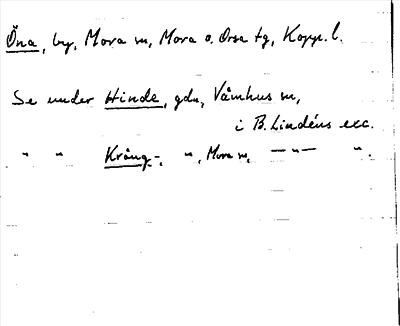 Öna, by, Mora sn, Mora o. Orsa tg, Kopp. l.
Se under Hinde, gdn, Våmhus sn,
i B. Lindéns exc.
" " Krång-, ", Mora sn, — " — ".